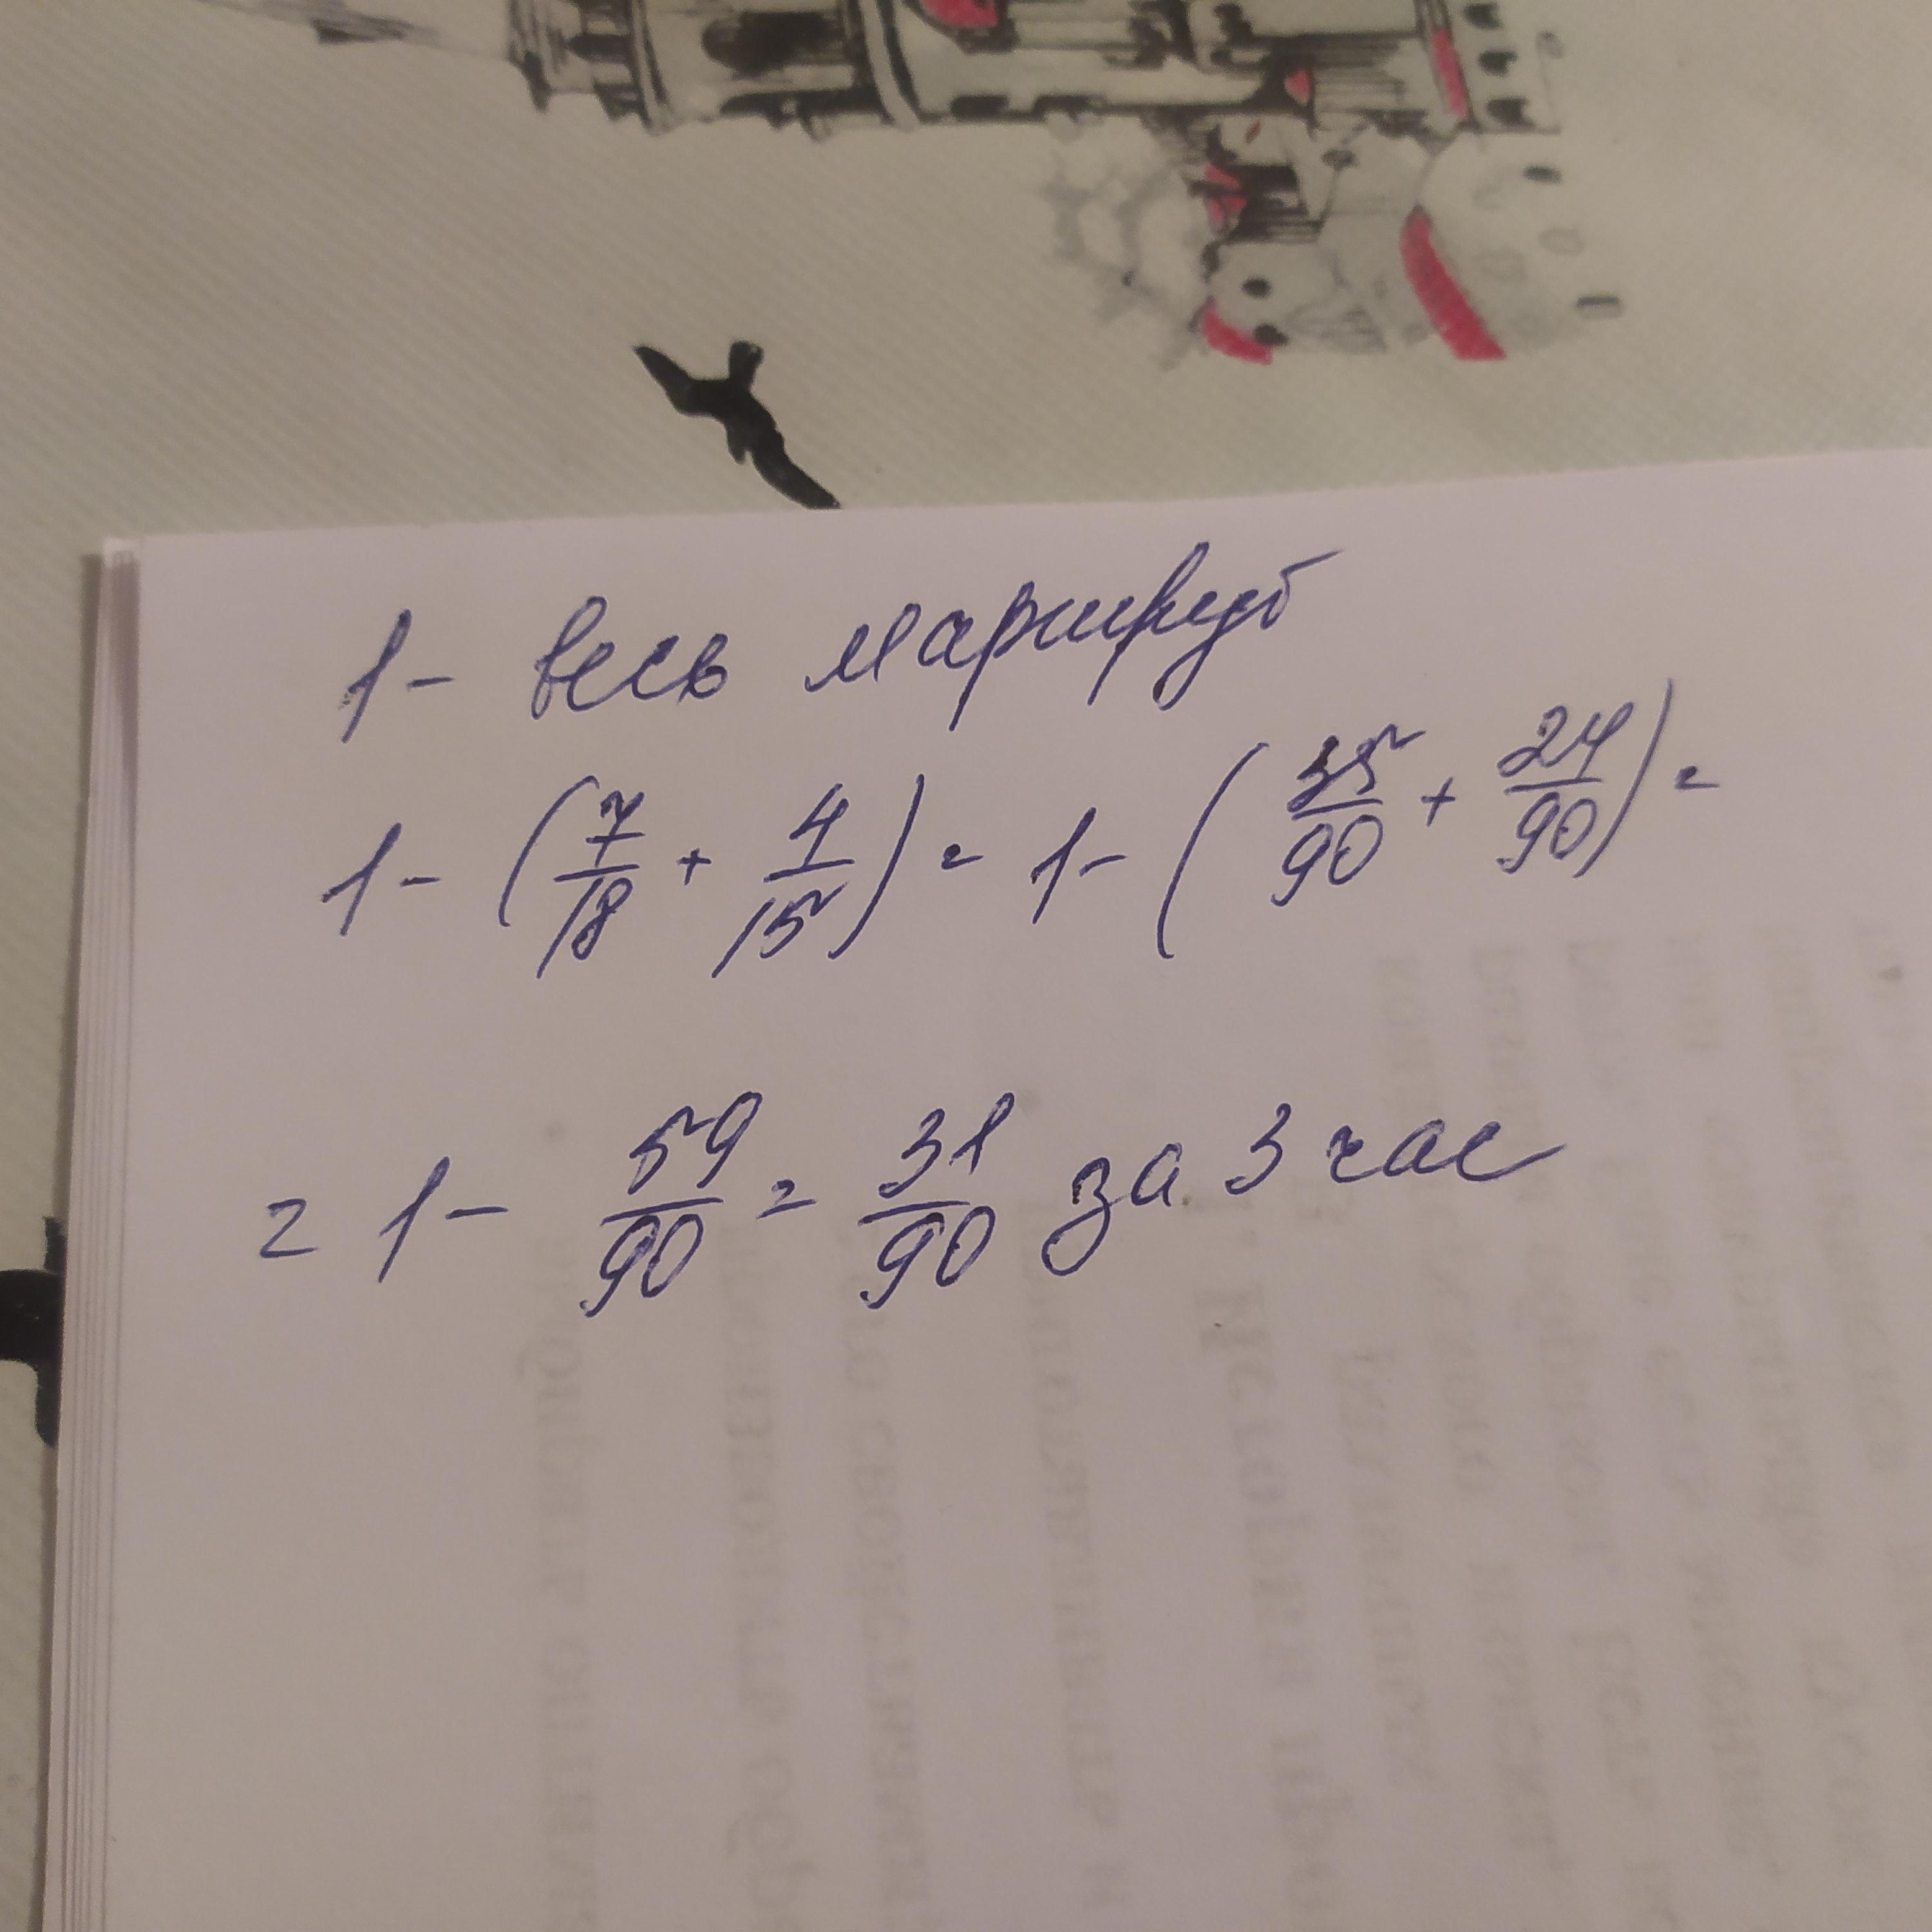 1 - весь маршрут
1 - (7/18 + 4/15) = 1 - (35/90 + 24/90) =
= 1 - 59/90 = 31/90 за 3 час